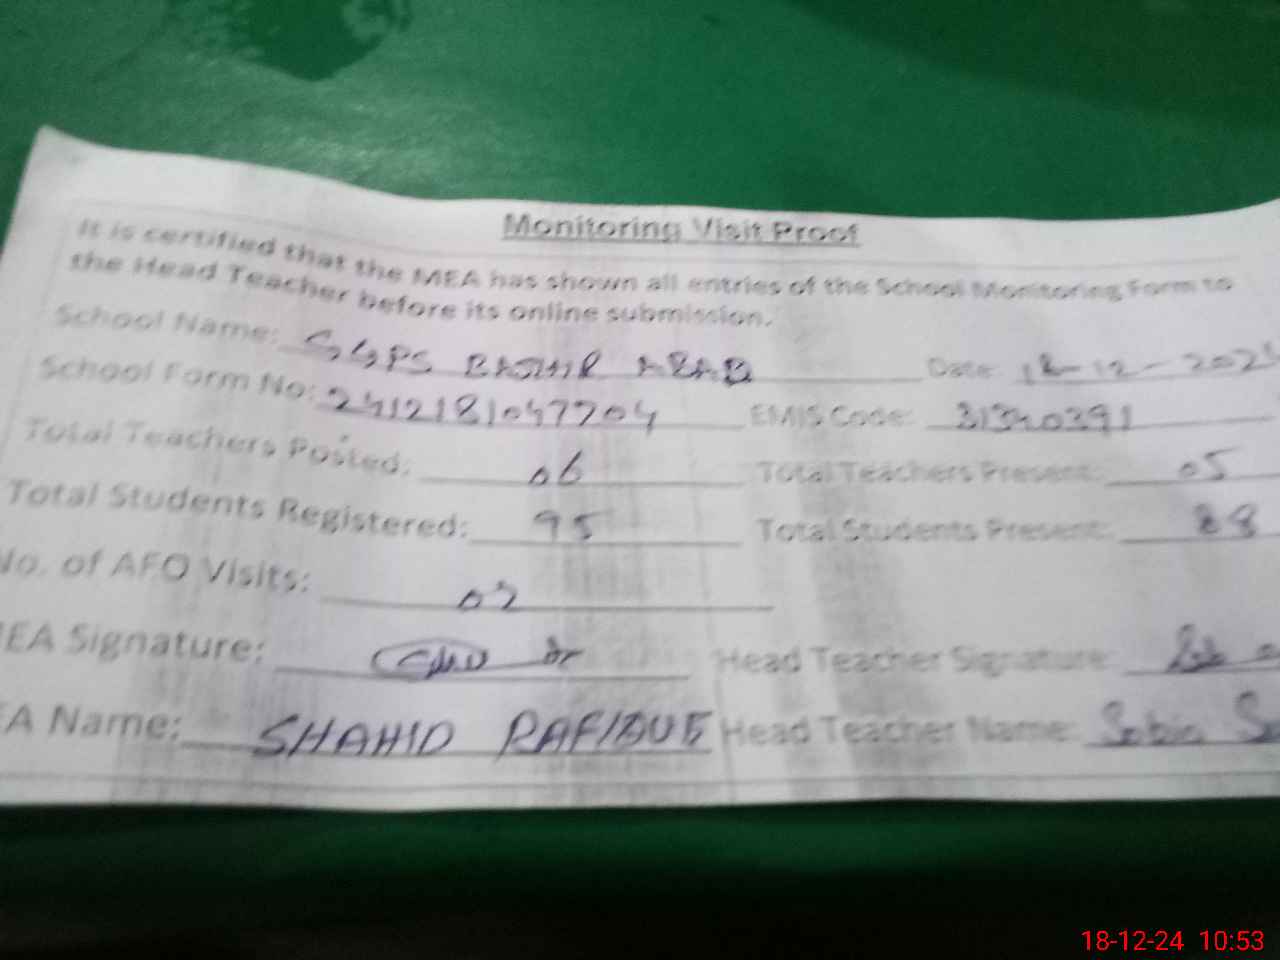 Monitoring Visit Proof
It is certified that the MEA has shown all entries of the School Monitoring Form to
the Head Teacher before its online submission.
School Name: SGPS BASHIR ABAD Date: 18-12-202
School Form No: 2412181047704 EMIS Code: 31340391
Total Teachers Posted: 06 Total Teachers Present: 05
Total Students Registered: 95 Total Students Present: 88
No. of AFO Visits: 02
EA Signature: Head Teacher Signature:
EA Name: SHAHID RAFIQUE Head Teacher Name: Sobia
18-12-24 10:53